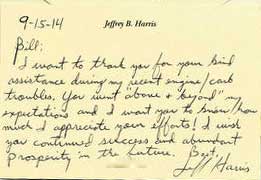 9-15-14
Jeffrey B. Harris
Bill:
I want to thank you for your kind
assistance during my recent engine/carb
troubles. You went "above & beyond" my
expectations and I want you to know how
much I appreciate your efforts! I wish
you continued success and abundant
prosperity in the future. Best,
Jeff Harris